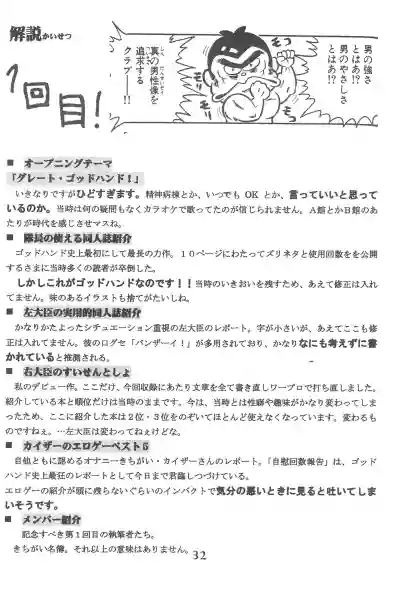 解説かいせつ
1回目!
男の強さ
とはあ!?
男のやさしさ
とはあ!?
真の男性像を
追求する
クラブ——!!
■ オープニングテーマ
『グレート・ゴッドハンド!』
いきなりですがひどすぎます。精神病棟とか、いつでも OK とか、言っていいと思って
いるのか。当時は何の疑問もなくカラオケで歌ってたのが信じられません。A館とかB館のあ
たりが時代を感じさせマスね。
■ 隊長の使える同人誌紹介
ゴッドハンド史上最初にして最長の力作。10ページにわたってズリネタと使用回数をを公開
するさまに当時多くの読者が卒倒した。
しかしこれがゴッドハンドなのです!!当時のいきおいを残すため、あえて修正は入れ
てません。味のあるイラストも捨てがたいしね。
■ 左大臣の実用的同人誌紹介
かなりかたよったシチュエーション重視の左大臣のレポート。字が小さいが、あえてここも修
正は入れてません。彼のログセ「バンザーイ!」が多用されており、かなりなにも考えずに書
かれていると推測される。
■ 右大臣のすいせんとしょ
私のデビュー作。ここだけ、今回収録にあたり文章を全て書き直しワープロで打ち直しました。
紹介している本と順位だけは当時のままです。今は、当時とは性癖や趣味がかなり変わってしま
ったため、ここに紹介した本は2位・3位をのぞいてほとんど使えなくなっています。変わるも
のですねぇ。…左大臣は変わってねぇけどな。
■ カイザーのエロゲーベスト5
自他ともに認めるオナニーきちがい・カイザーさんのレポート。「自慰回数報告」は、ゴッド
ハンド史上最狂のレポートとして今日まで君臨しつづけている。
エロゲーの紹介が頭に残らないぐらいのインパクトで気分の悪いときに見ると吐いてしま
いそうです。
■ メンバー紹介
記念すべき第1回目の執筆者たち。
きちがい名簿。それ以上の意味はありません。
32